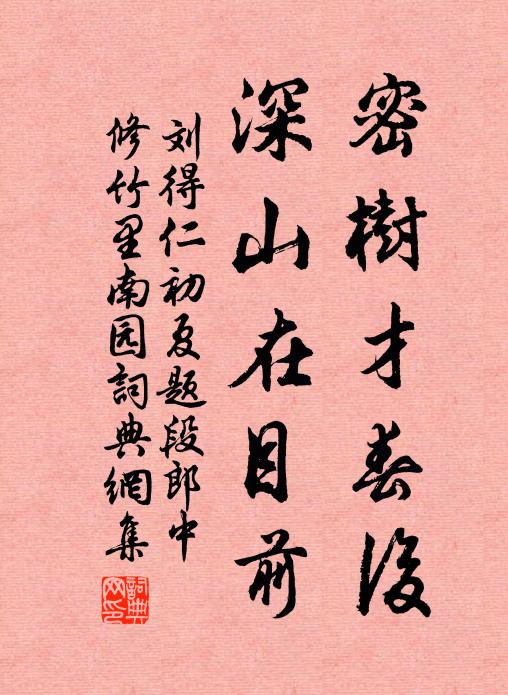 密樹才春後
深山在目前
刘得仁初夏題段郎中
修竹里南园詞典網集
詞典網印